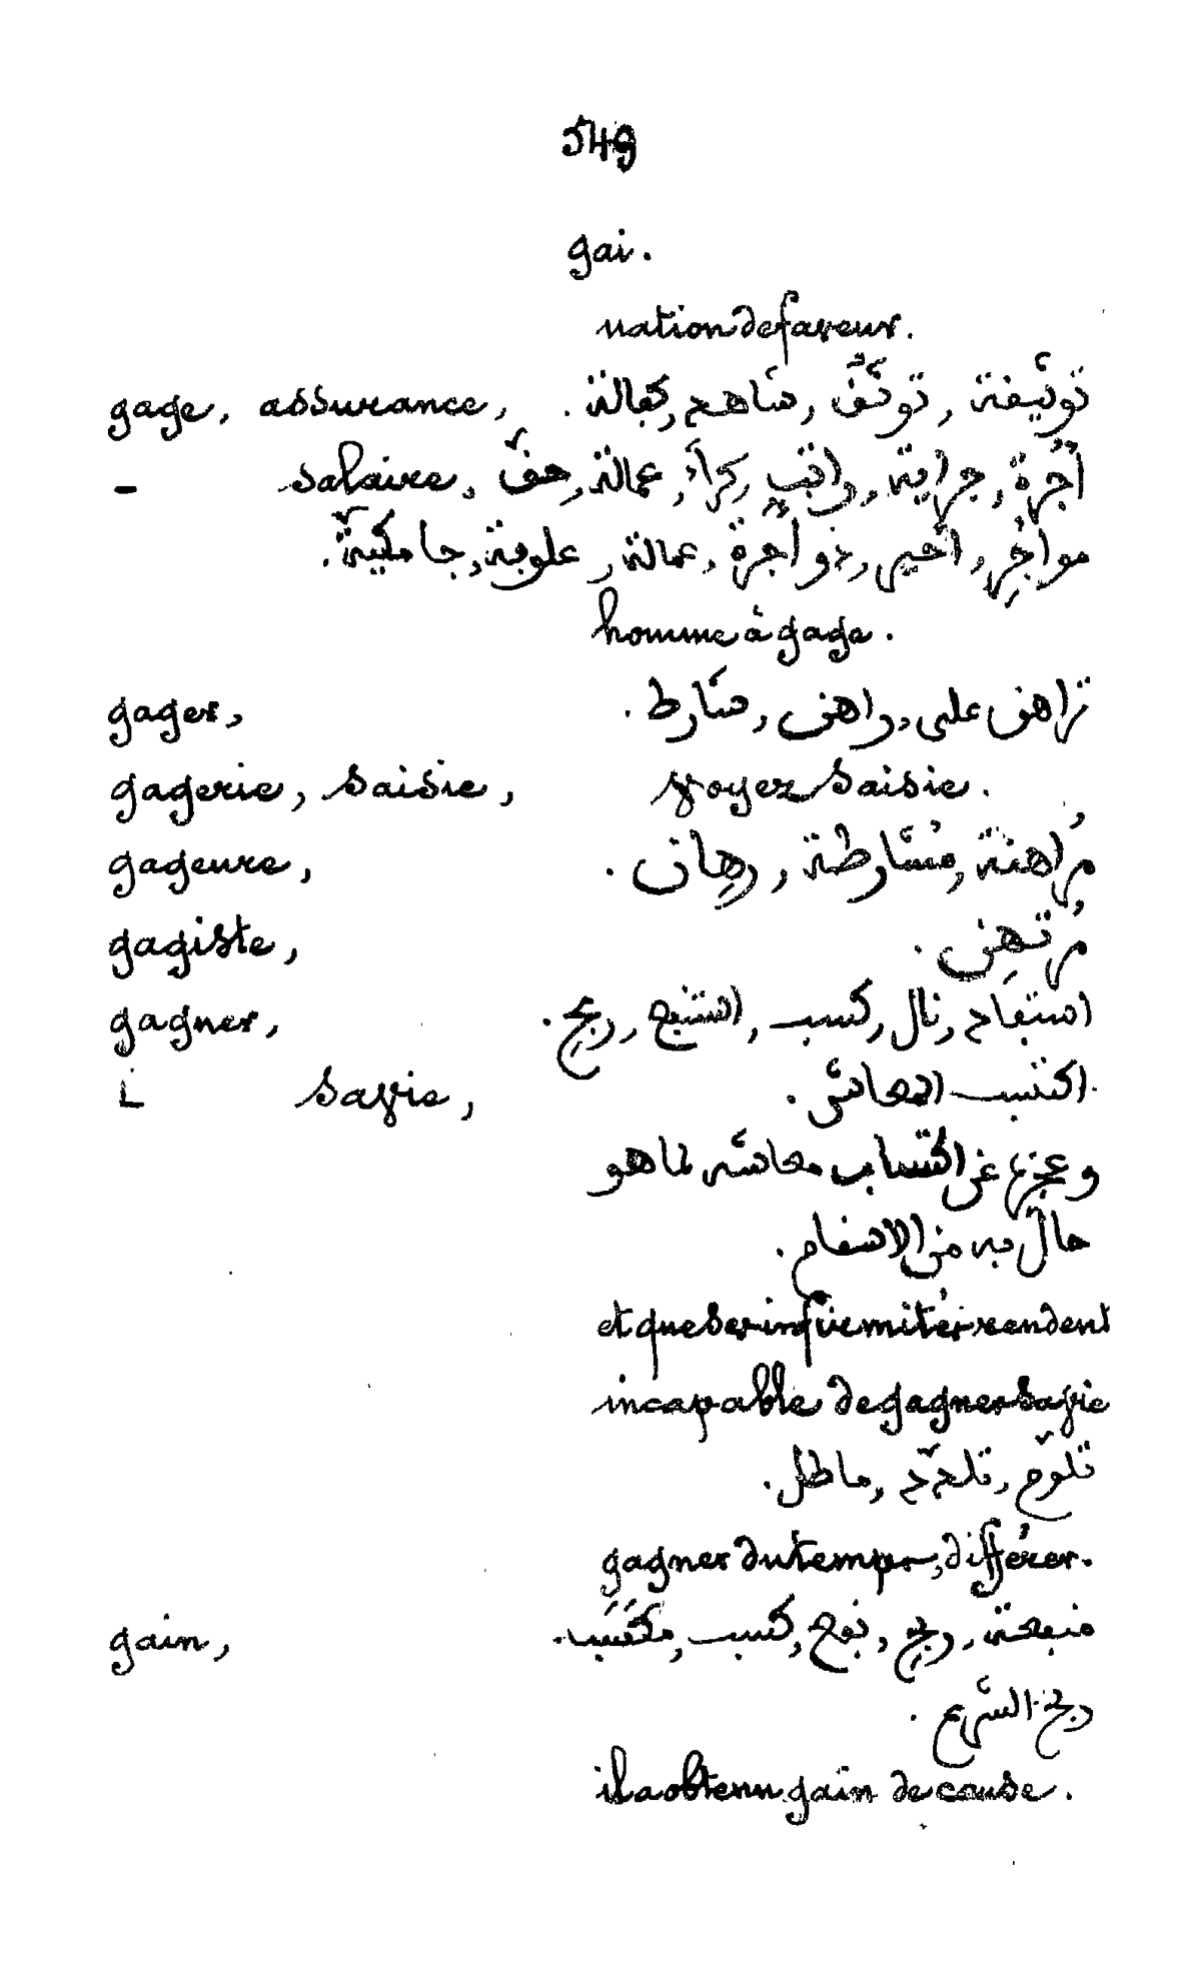 549
gai.
nation de faveur.
gage, assurance, توثيقة, توثّق, كفالة.
- salaire, أُجْرة, جراية, راتب, كراء, عمالة, حقّ
مواجِر, اجير, ذو أجرة, عمالة, علوفة, جامكيّة.
homme à gage.
gager, تراهن على, راهن, شارط.
gagerie, saisie, voyez saisie.
gageure, مُراهنة, مُشارطة, رِهان.
gagiste, مُرتهِن.
gagner, استفاد, نال, كسب, استنفع, ربح.
sa vie, اكتسب المعاش.
وعجزه عن اكتساب معاشه لما هو
حالّ به من الاسقام.
et que ses infirmités rendent
incapable de gagner sa vie
تلوّم, ماطل.
gagner du temps, différer.
gain, منفعة, ربح, نفع, كسب, مكتَسَب.
ربح الشرع.
il a obtenu gain de cause.